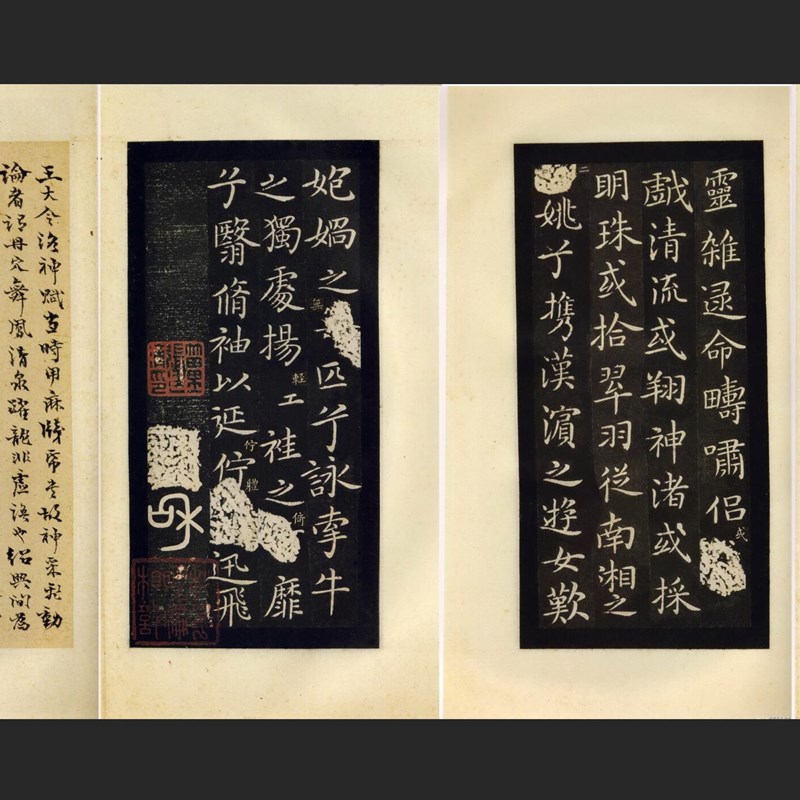 靈雜遝命疇嘯侶或
戲清流或翔神渚或採
明珠或拾翠羽從南湘之
二姚兮攜漢濱之遊女歎
媧之無匹兮詠牽牛
之獨處揚輕袿之倚靡
兮翳脩袖以延佇體迅飛
王大令洛神賦當時用麻牋帋書故神采飛動
論者謂丹穴舞鳳清泉躍龍非虛語也紹興間為